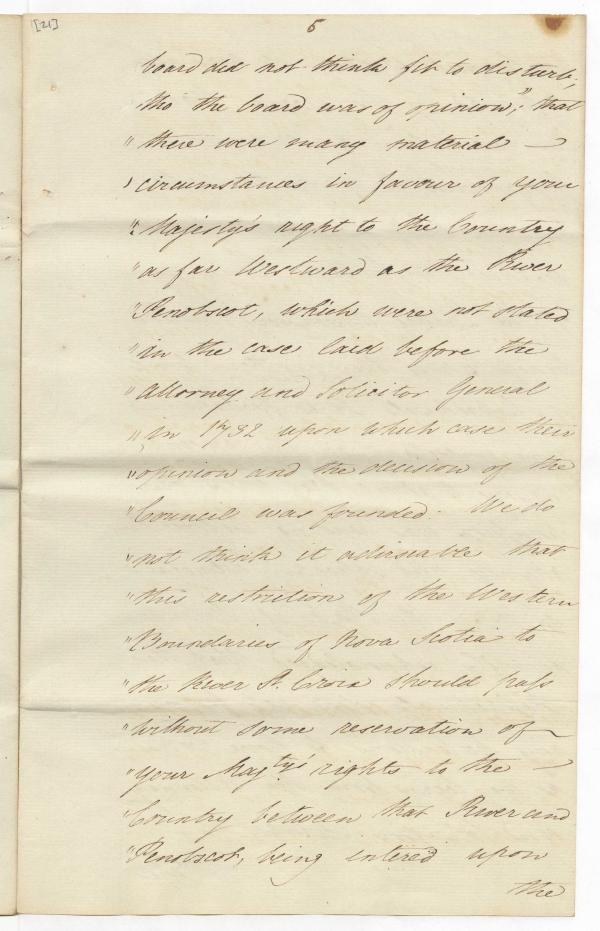 [21]
5
board did not think fit to disturb,
tho the board was of opinion, "that
" there were many material
" circumstances in favour of your
" Majesty's right to the Country
" as far Westward as the River
" Penobscot, which were not stated
" in the case laid before the
" Attorney and Solicitor General
" in 1732 upon which case their
" opinion and the decision of the
" Council was founded. We do
" not think it adviseable that
" this restriction of the Western
" Boundaries of Nova Scotia to
" the River St. Croix should pass
" without some reservation of
" your Majty's rights to the
" Country between that River and
" Penobscot, being entered upon
the